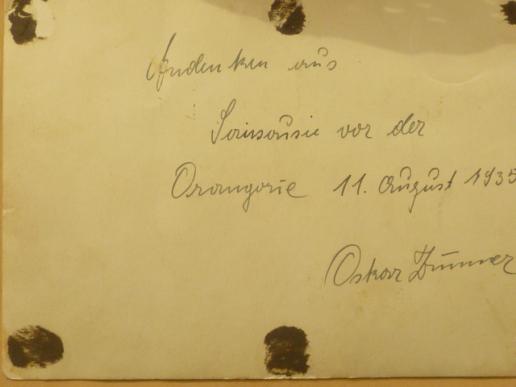 Andenken aus
Sanssusie vor der
Orangerie 11. August 1935
Oskar